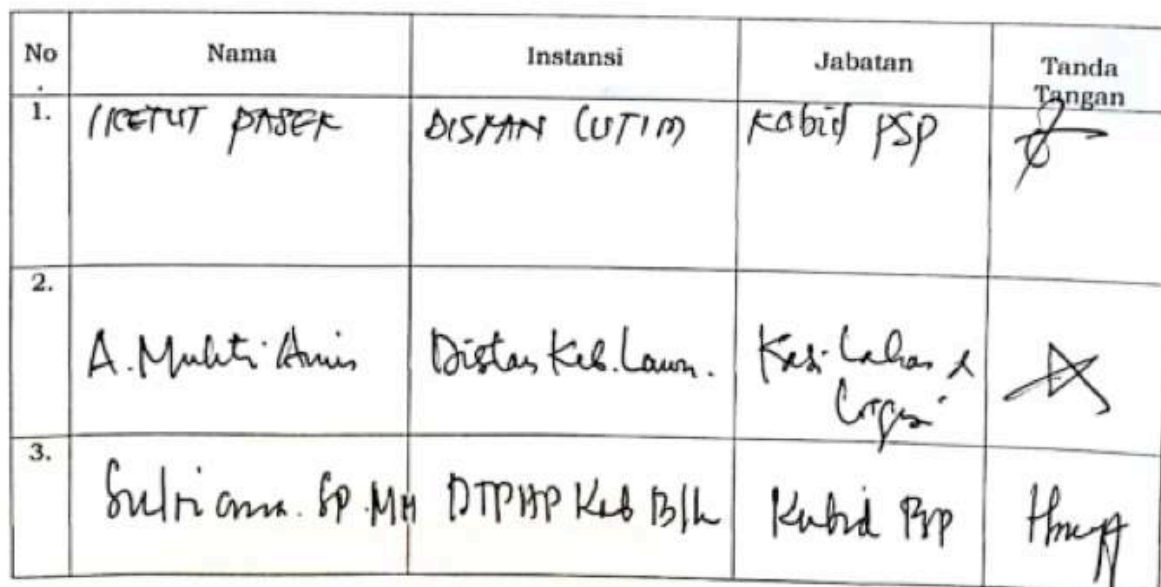 No. Nama Instansi Jabatan Tanda Tangan
1. I KETUT PASEK DISTAN LUTIM Kabid PSP
2. A. Mukti Amin Distan Kab. Kasi Lahan &
Irigasi
3. SP. MH DTPHP Kab Blk Kabid PSP